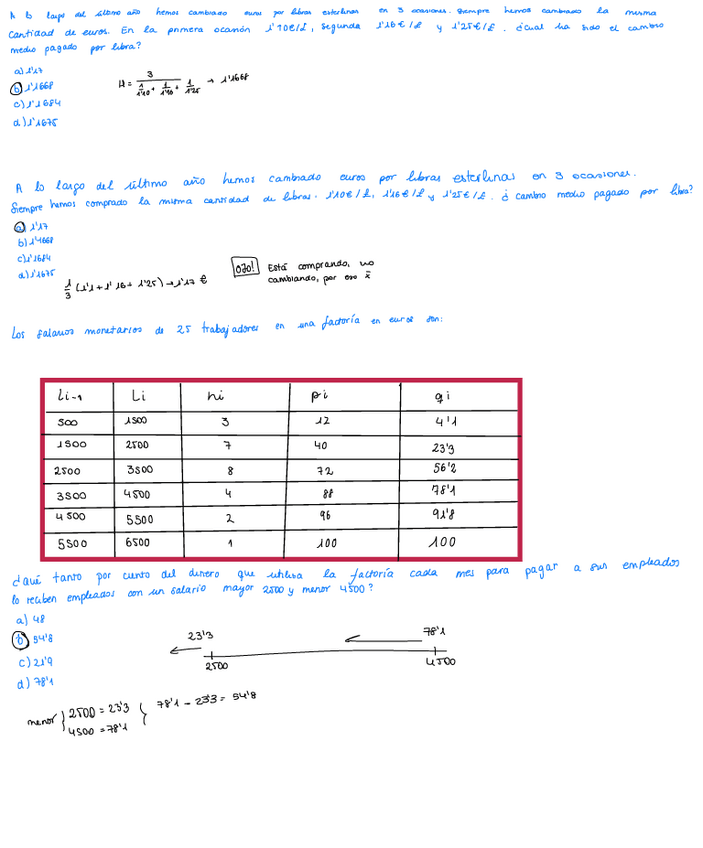 A lo largo del último año hemos cambiado euros por libras esterlinas en 3 ocasiones. Siempre hemos cambiado la misma
cantidad de euros. En la primera ocasión 1'10€/£, segunda 1'16€/£ y 1'25€/£. ¿cual ha sido el cambio
medio pagado por libra?
a) 1'17
b) 1'1668
c) 1'1684
d) 1'1675
H = 3 / (1/1'10 + 1/1'10 + 1/1'25) → 1'1668
A lo largo del último año hemos cambiado euros por libras esterlinas en 3 ocasiones.
Siempre hemos comprado la misma cantidad de libras. 1'10€/£, 1'16€/£ y 1'25€/£. ¿ cambio medio pagado por libra?
a) 1'17
b) 1'1668
c) 1'1684
d) 1'1675
1/3 (1'1 + 1'16 + 1'25) → 1'17 €
OJO! Está comprando, no
cambiando, por eso x̄
Los salarios monetarios de 25 trabajadores en una factoría en euros son:
Li-1 Li ni pi qi
500 1500 3 12 4'1
1500 2500 7 40 23'3
2500 3500 8 72 56'2
3500 4500 4 88 78'1
4500 5500 2 96 91'8
5500 6500 1 100 100
¿Qué tanto por ciento del dinero que utiliza la factoría cada mes para pagar a sus empleados
lo reciben empleados con un salario mayor 2500 y menor 4500?
a) 48
b) 54'8
c) 21'9
d) 78'1
23'3 78'1
2500 4500
menor } 2500 = 23'3 } 78'1 - 23'3 = 54'8
4500 = 78'1